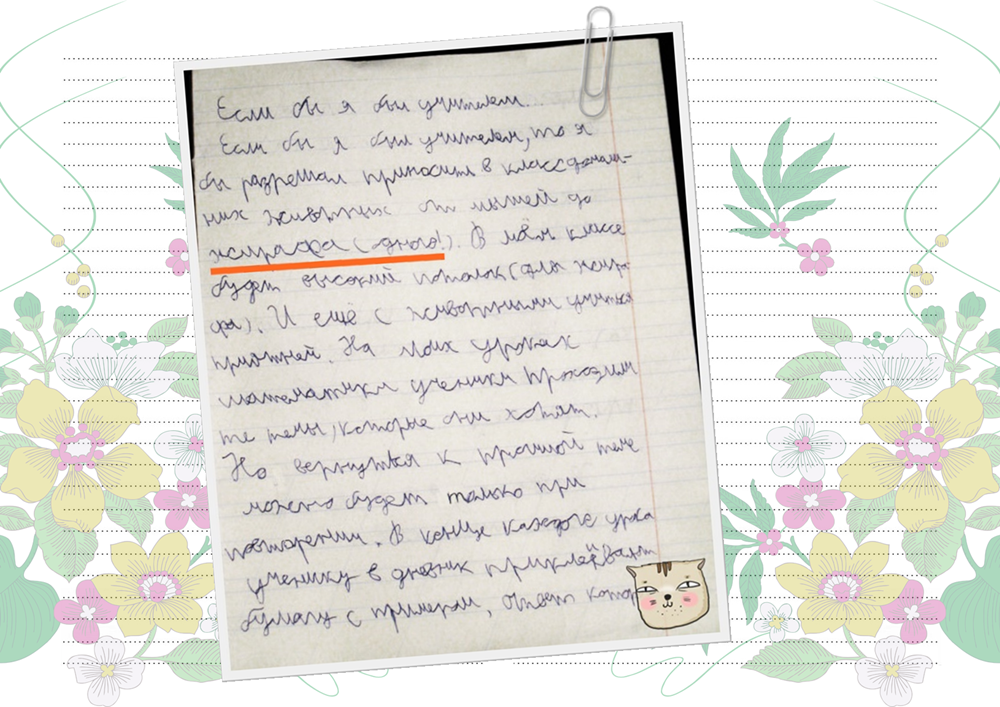 Если бы я был учителем...
Если бы я был учителем, то я
бы разрешал приносить в класс домаш-
них животных от мышей до
жирафа (одного!). В моём классе
будет высокий потолок (для жира-
фа). И ещё с животными учиться
приятней. На моих уроках
математики ученики проходили
те темы, которые они хотят.
Но вернуться к прошлой теме
можно будет только при
повторении. В конце каждого урока
ученику в дневник приклеивают
бумагу с примером, ответ